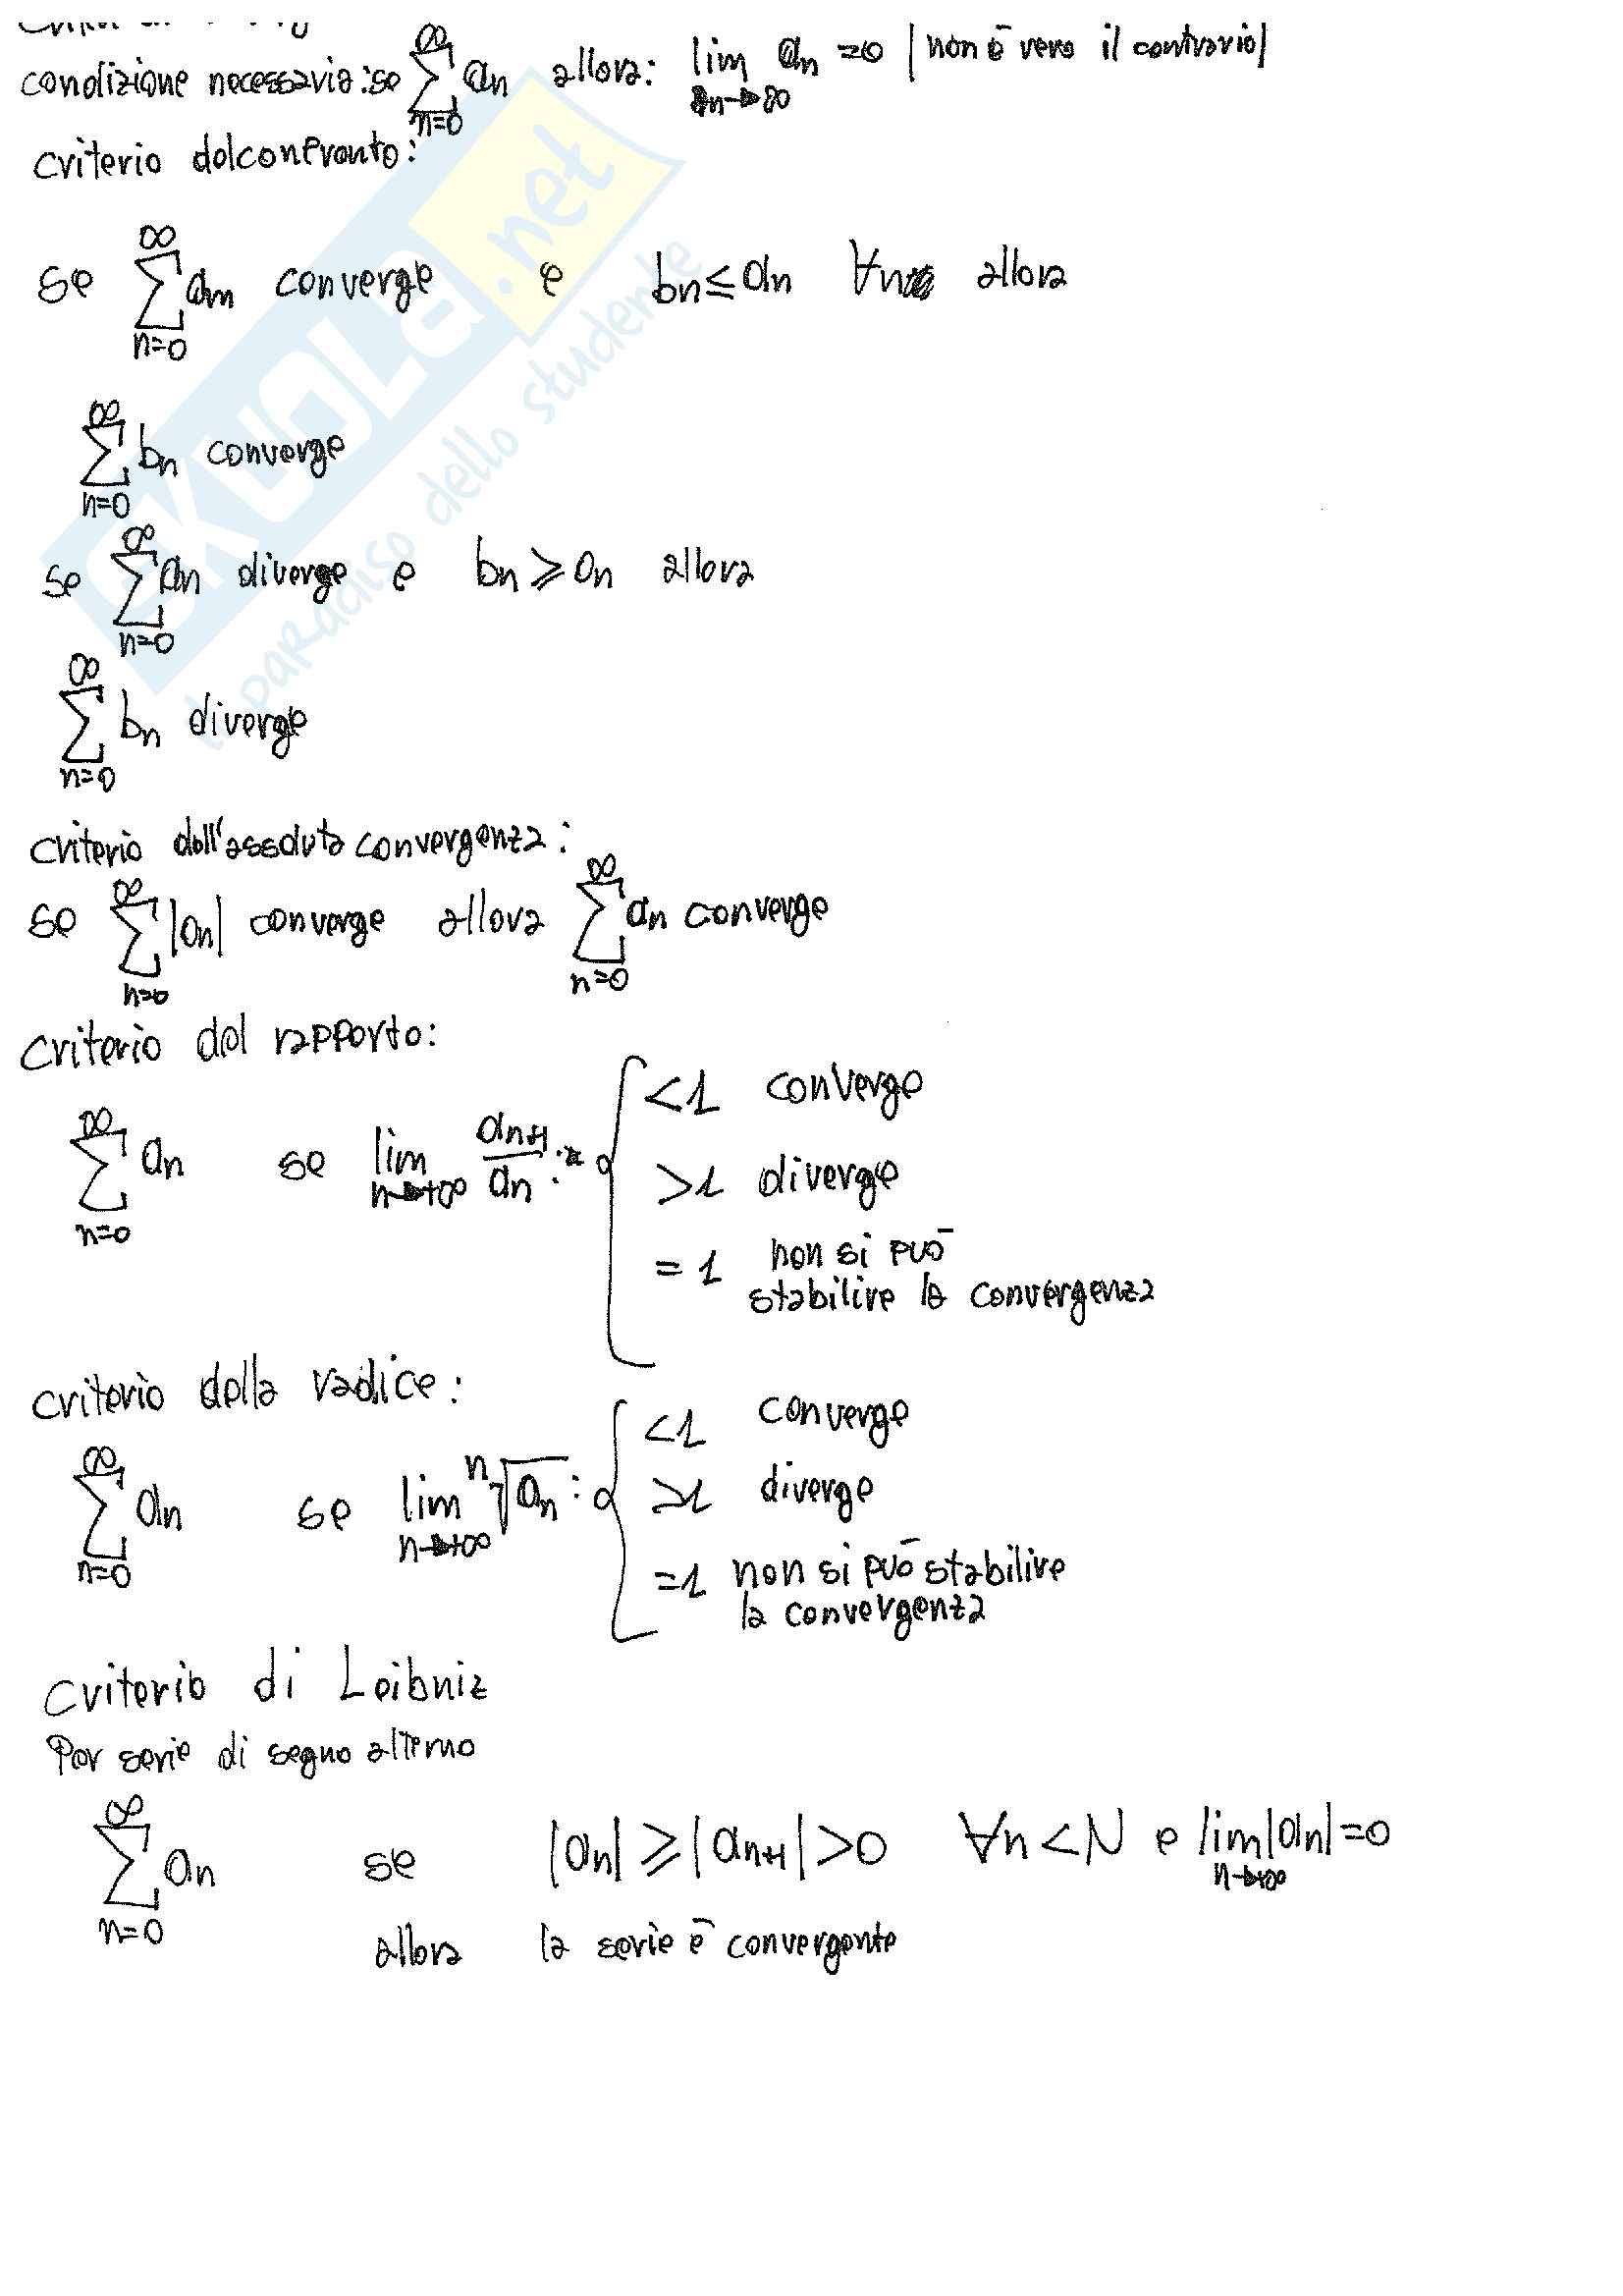 condizione necessaria: se ∑_{n=0}^{∞} a_n allora: lim_{n→∞} a_n = 0 | non è vero il contrario |
criterio del confronto:
se ∑_{n=0}^{∞} a_n converge e b_n ≤ a_n ∀n allora
∑_{n=0}^{∞} b_n converge
se ∑_{n=0}^{∞} a_n diverge e b_n ≥ a_n allora
∑_{n=0}^{∞} b_n diverge
criterio dell'assoluta convergenza:
se ∑_{n=0}^{∞} |a_n| converge allora ∑_{n=0}^{∞} a_n converge
criterio del rapporto:
∑_{n=0}^{∞} a_n se lim_{n→+∞} a_{n+1}/a_n : { <1 converge
>1 diverge
=1 non si può
stabilire la convergenza
criterio della radice:
∑_{n=0}^{∞} a_n se lim_{n→+∞} ⁿ√a_n : { <1 converge
>1 diverge
=1 non si può stabilire
la convergenza
criterio di Leibniz
Per serie di segno alterno
∑_{n=0}^{∞} a_n se |a_n| ≥ |a_{n+1}| > 0 ∀n < N e lim_{n→+∞} |a_n| = 0
allora la serie è convergente
SKUOLA.net
il paradiso dello studente